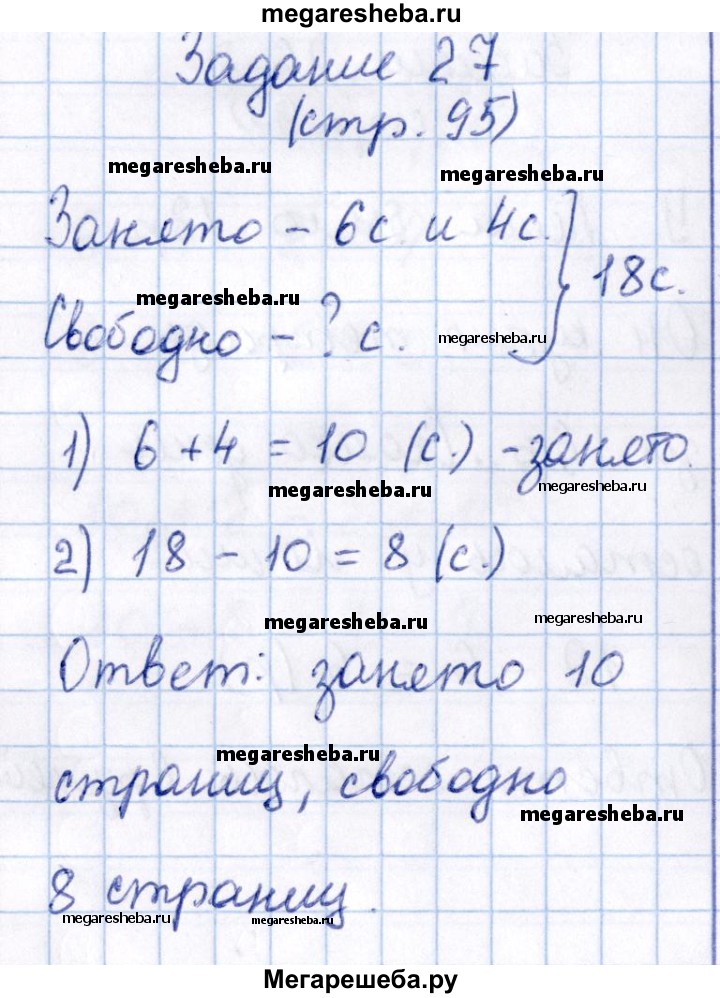 megaresheba.ru
Задание 27
(стр. 95)
megaresheba.ru
Занято - 6с. и 4с. } 18с.
megaresheba.ru
Свободно - ? с.
megaresheba.ru
1) 6 + 4 = 10 (с.) - занято.
megaresheba.ru
megaresheba.ru
2) 18 - 10 = 8 (с.)
megaresheba.ru
megaresheba.ru
Ответ: занято 10
megaresheba.ru
страниц, свободно
megaresheba.ru
8 страниц.
megaresheba.ru
megaresheba.ru
Мегарешеба.ру